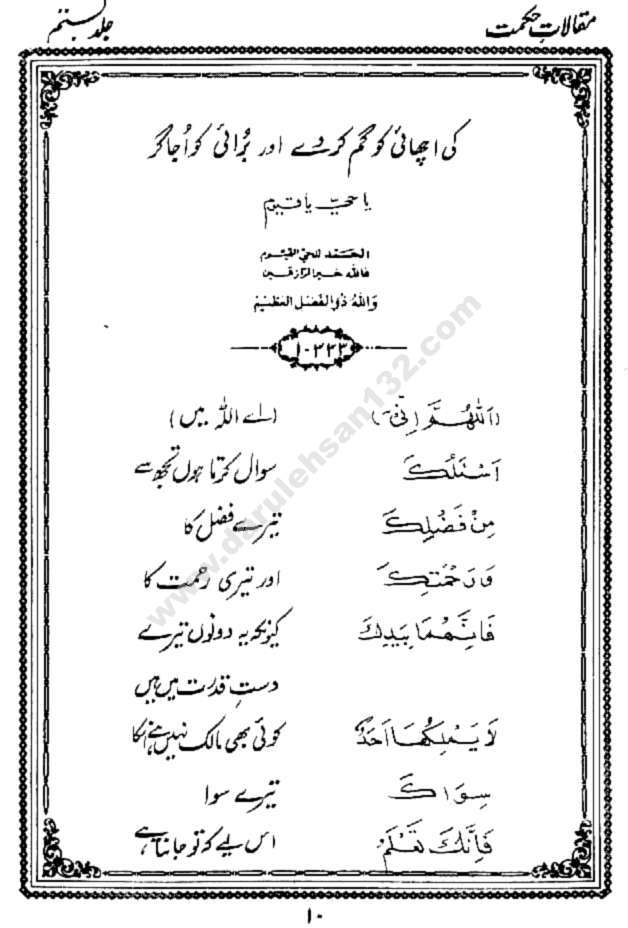 مقالاتِ حکمت جلد بستم
کی اچھائی کو گم کر دے اور بُرائی کو اُجاگر
یا حیّ یا قیوم
الحَمد للحیّ القیّوم
فاللّٰه خیرالرّازقین
وَاللّٰهُ ذُوالفَضلِ العَظِیْمِ
۱۰۲۲۳
(اَللّٰهُمَّ اِنِّیْ) (اے اللہ میں)
اَسْئَلُكَ سوال کرتا ہوں تجھ سے
مِنْ فَضْلِكَ تیرے فضل کا
وَرَحْمَتِكَ اور تیری رحمت کا
فَاِنَّهُمَا بِیَدِكَ کیونکہ یہ دونوں تیرے
دستِ قدرت میں ہیں
لَا یَمْلِكُهَا اَحَدٌ کوئی بھی مالک نہیں ہے انکا
سِوَاكَ تیرے سوا
فَاِنَّكَ تَعْلَمُ اس لیے کہ تو جانتا ہے
۱۰
www.darulehsan132.com